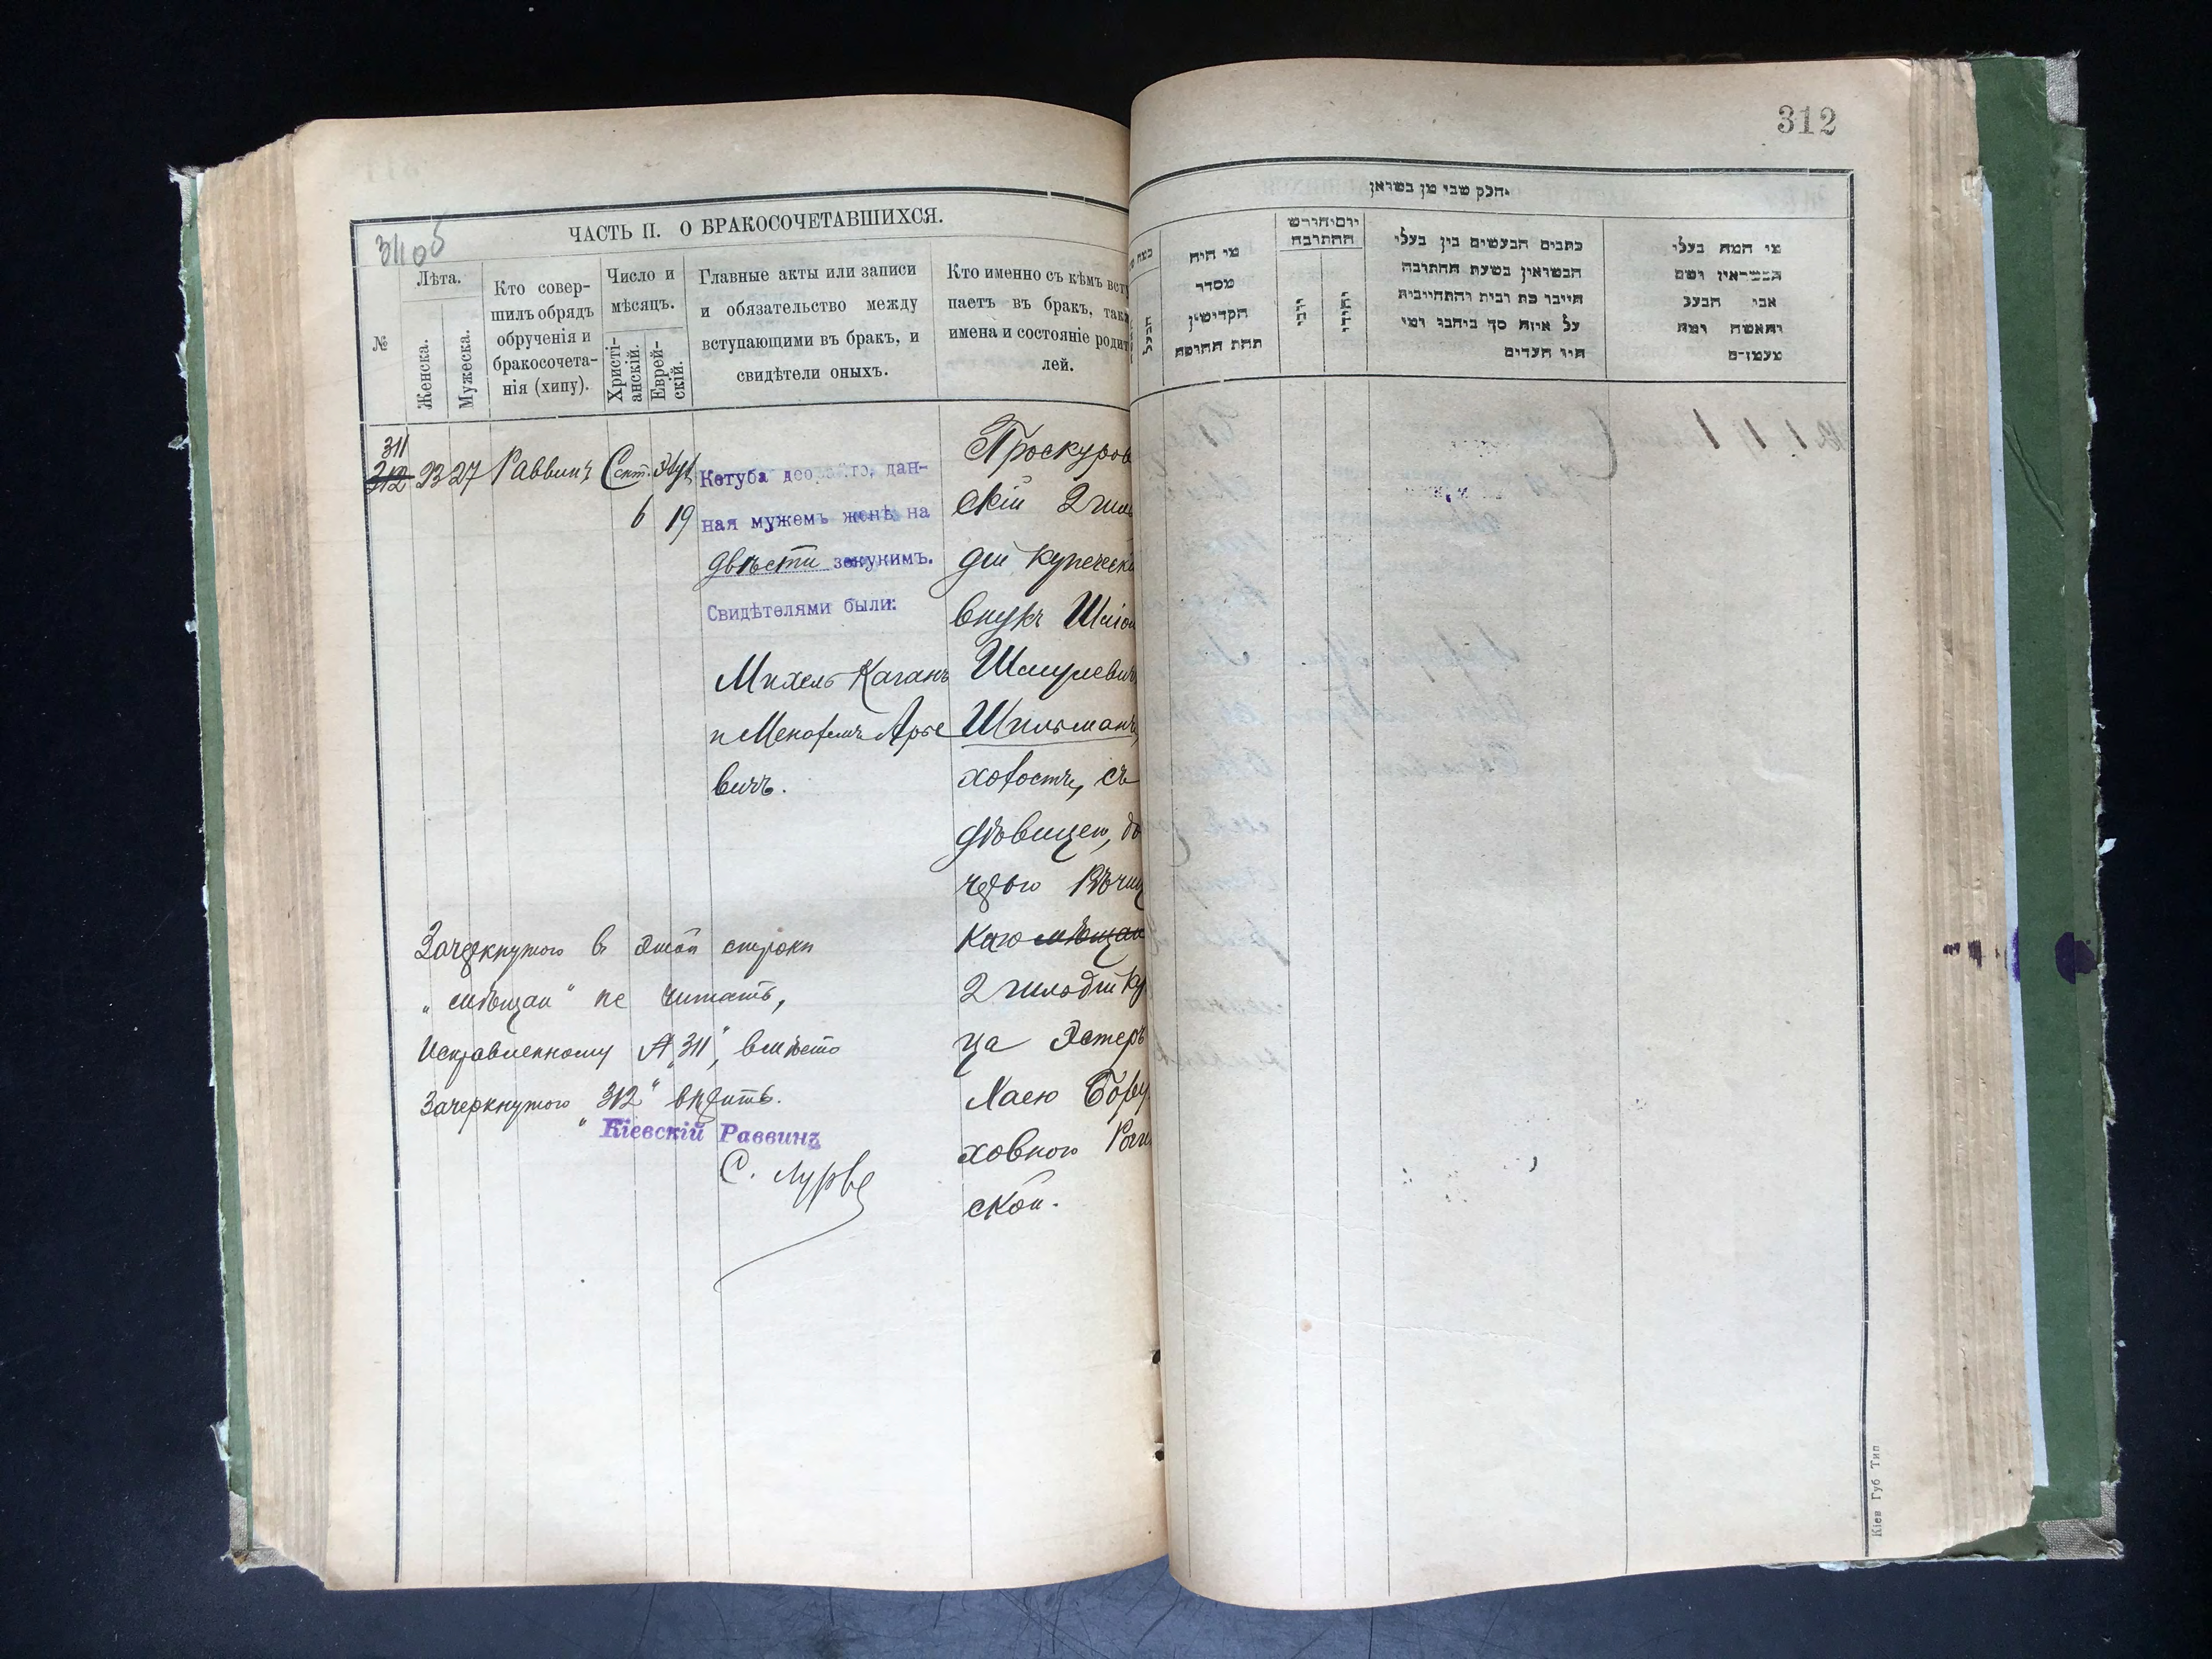 311об
ЧАСТЬ II. О БРАКОСОЧЕТАВШИХСЯ.
№
Лѣта.
Женска.
Мужеска.
Кто совер-
шилъ обрядъ
обрученія и
бракосочета-
нія (хипу).
Число и
мѣсяцъ.
Христі-
анскій.
Еврей-
скій.
Главные акты или записи
и обязательство между
вступающими въ бракъ, и
свидѣтели оныхъ.
Кто именно съ кѣмъ всту
паетъ въ бракъ, так
имена и состояніе родит
лей.
311
312 23 27 Раввинъ Сент. Элул
6 19
Кетуба дан-
ная мужемъ женѣ на
двѣсти зекукимъ.
Свидѣтелями были:
Михель Каганъ
и Менахемъ Арье
вичъ.
Проскуров
скій 2 гиль
діи купеческ
внукъ
Шмулевичъ
Шпильманъ,
холостъ, съ
дѣвицею, до
черью Рѣчиц
каго мѣщан
2 гильдіи ку
ца Эстеръ
Хаею Бору
ховною
ской.
Зачеркнутого в этой строки
„мѣщан" не читать,
Исправленному № „311", вмѣсто
Зачеркнутого „312" вѣрить.
Кіевскій Раввинъ
С. Лурье
312
חלק שני מן נשואין
מי היה
מסדר
הקדושין
תחת החופה
יום וחודש
החתונה
נוצרי
יהודי
כתבים הנעשים בין בעלי
הנשואין בשעת החתונה
היינו כת רבית והתחייבות
על איזה סך ביחבו ומי
היו העדים
מי המה בעלי
הנשואין ושם
אבי הבעל
והאשה ומה
מעמדם
הבעל
Кіев Губ Тип